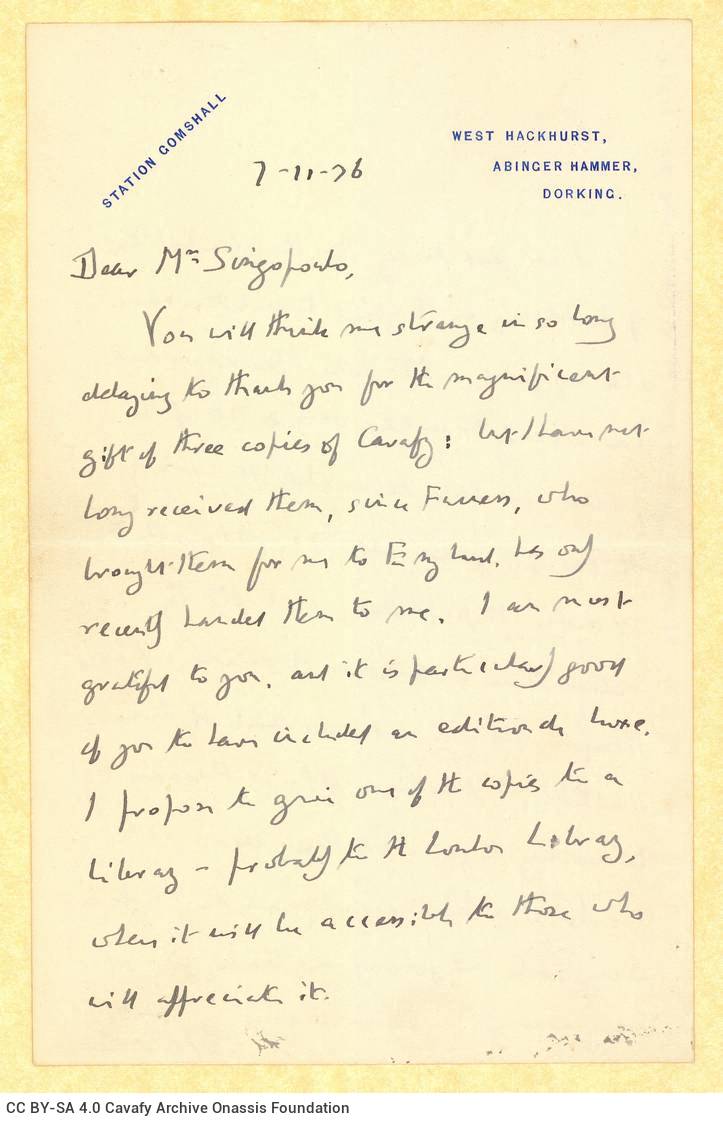 STATION GOMSHALL
WEST HACKHURST,
ABINGER HAMMER,
DORKING.
7-11-36
Dear Mrs Singopoulo,
You will think me strange in so long
delaying to thank you for the magnificent
gift of three copies of Cavafy: but I have not
long received them, since Furness, who
brought them for me to England, has only
recently handed them to me. I am most
grateful to you, and it is particularly good
of you to have included an edition de luxe.
I propose to give one of the copies to a
library – probably to the London Library,
where it will be accessible to those who
will appreciate it.
CC BY-SA 4.0 Cavafy Archive Onassis Foundation